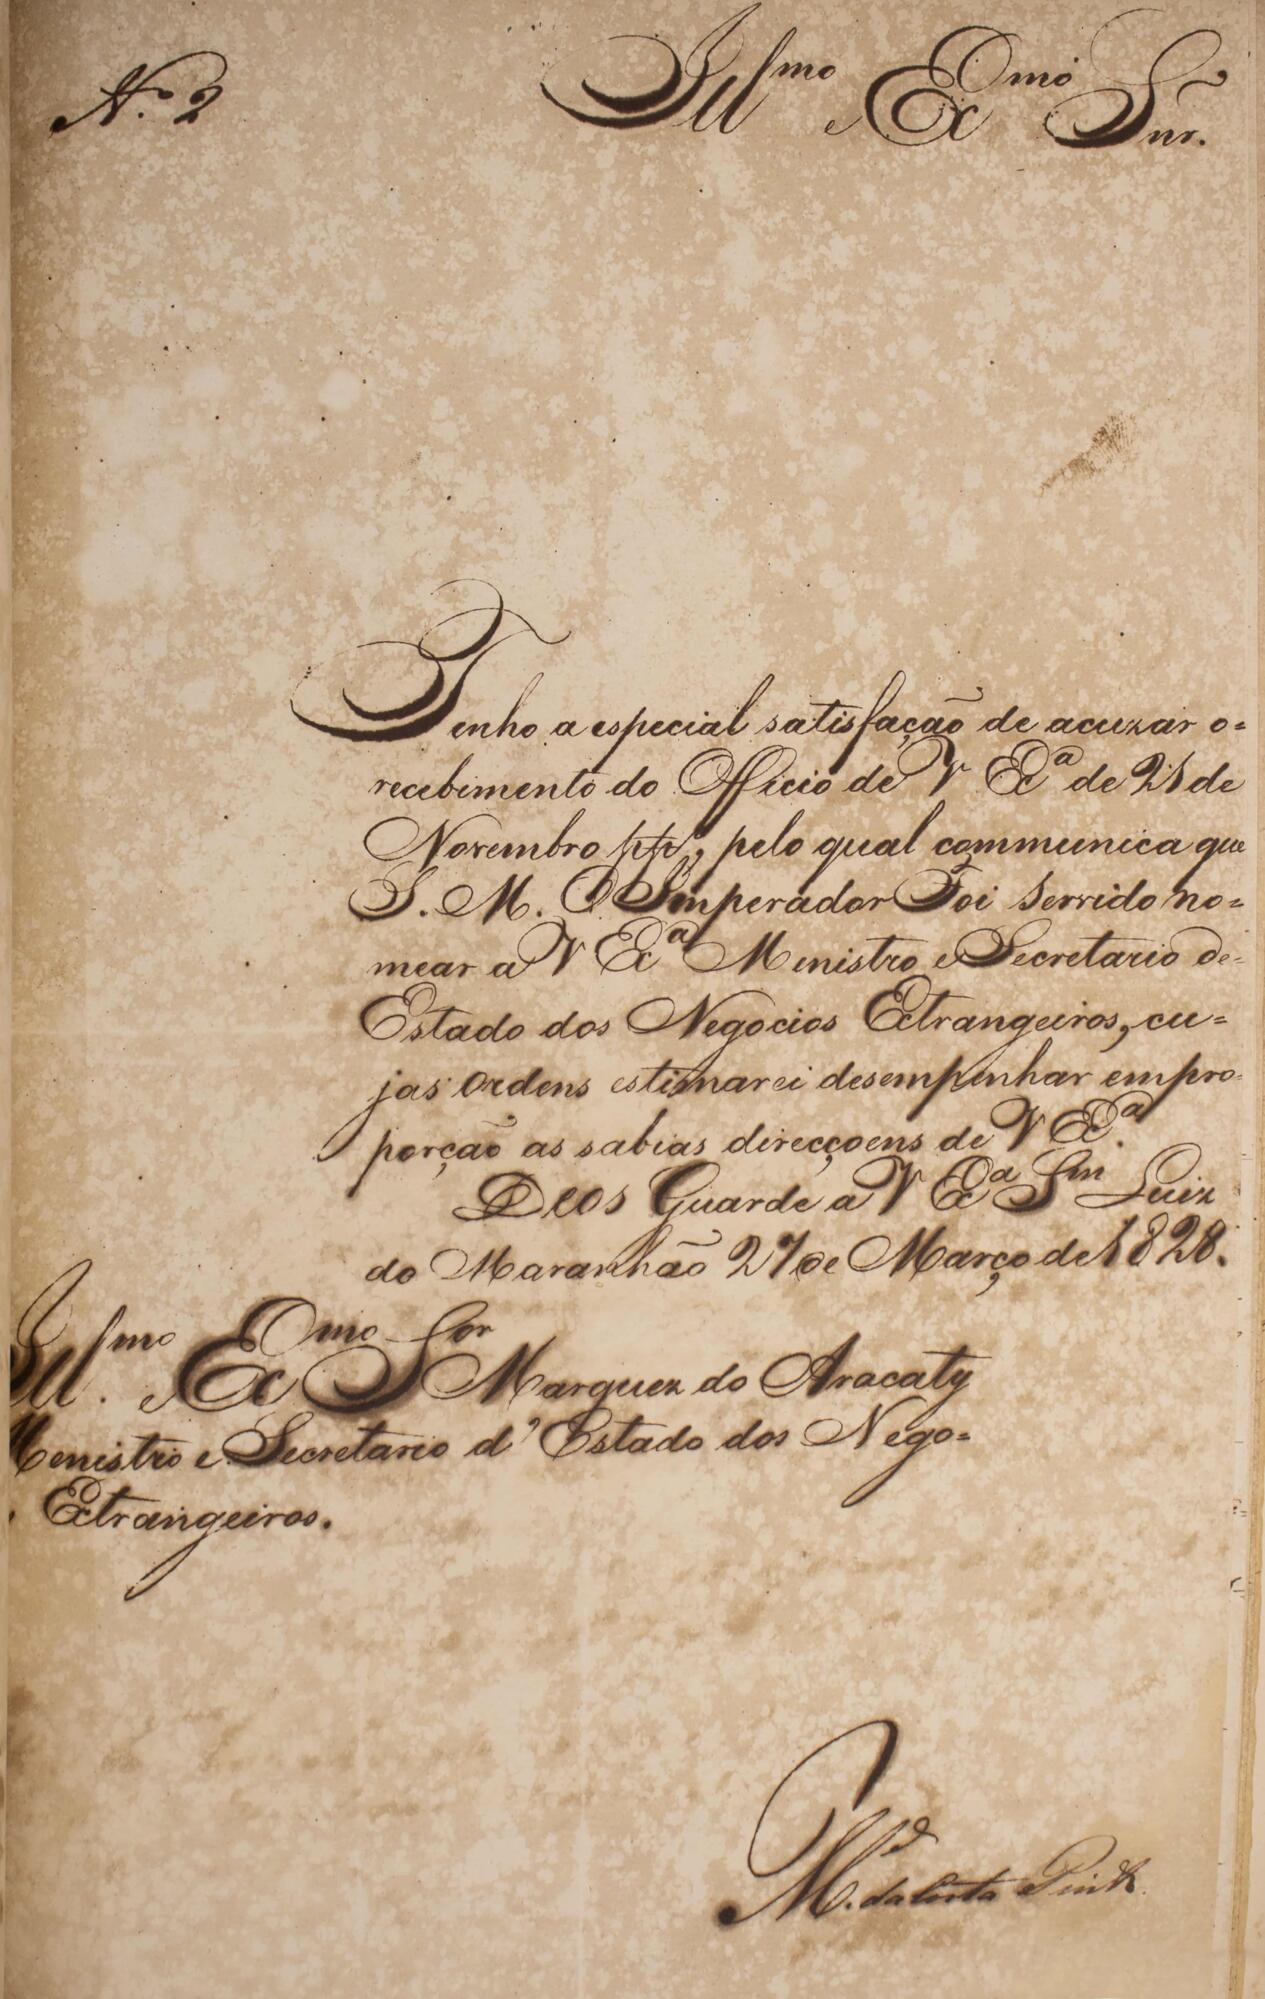 N.º 2
Ill.mo e Ex.mo Snr.
Tenho a especial satisfação de acuzar o=
recebimento do Officio de V Ex.ª de 21 de
Novembro pp., pelo qual communica que
S. M. O Imperador Foi Servido no=
mear a V Ex.ª Menistro e Secretario de=
Estado dos Negocios Extrangeiros, cu=
jas ordens estimarei desempenhar em pro=
porção as sabias direcçoens de V Ex.ª
Deos Guarde a V Ex.ª Sm Luiz
do Maranhão 27 de Março de 1828.
Ill.mo e Ex.mo Sor Marquez do Aracaty
Menistro e Secretario d'Estado dos Nego=
Extrangeiros.
M.el da Costa Pinto